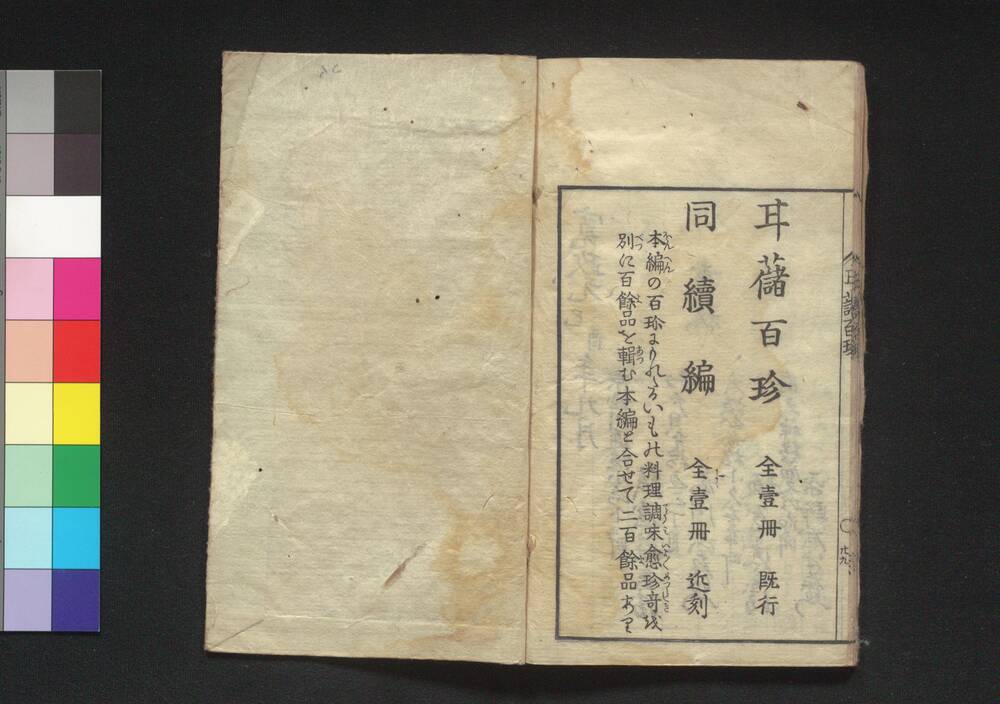 甘藷百珍　全壹冊　既行
同續編　全壹冊　近刻
本編の百珍にもれたるいもの料理調味愈珍奇を
別に百餘品を輯む本編と合せて二百餘品あり
甘藷百珍
廿九